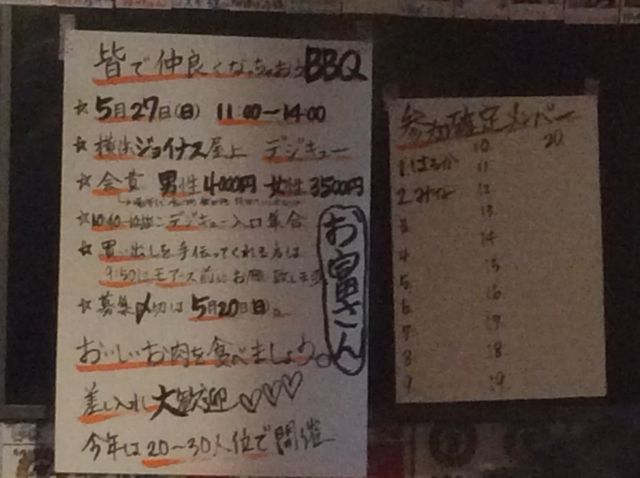 皆で仲良くなっちゃおうBBQ
☆5月27日(日) 11:00〜14:00
☆横浜ジョイナス屋上 デジキュー
☆会費 男性4000円 女性3500円
デジキュー入口集合
☆買い出しを手伝ってくれる方は
9:50にモアーズ前にお願い致します
☆募集〆切は5月20日(日)。
おいしいお肉を食べましょう。
差し入れ大歓迎♡♡♡
今年は20〜30人位で開催
お富さん
参加確定メンバー
1 はるか
2
3
4
5
6
7
8
9
10
11
12
13
14
15
16
17
18
19
20